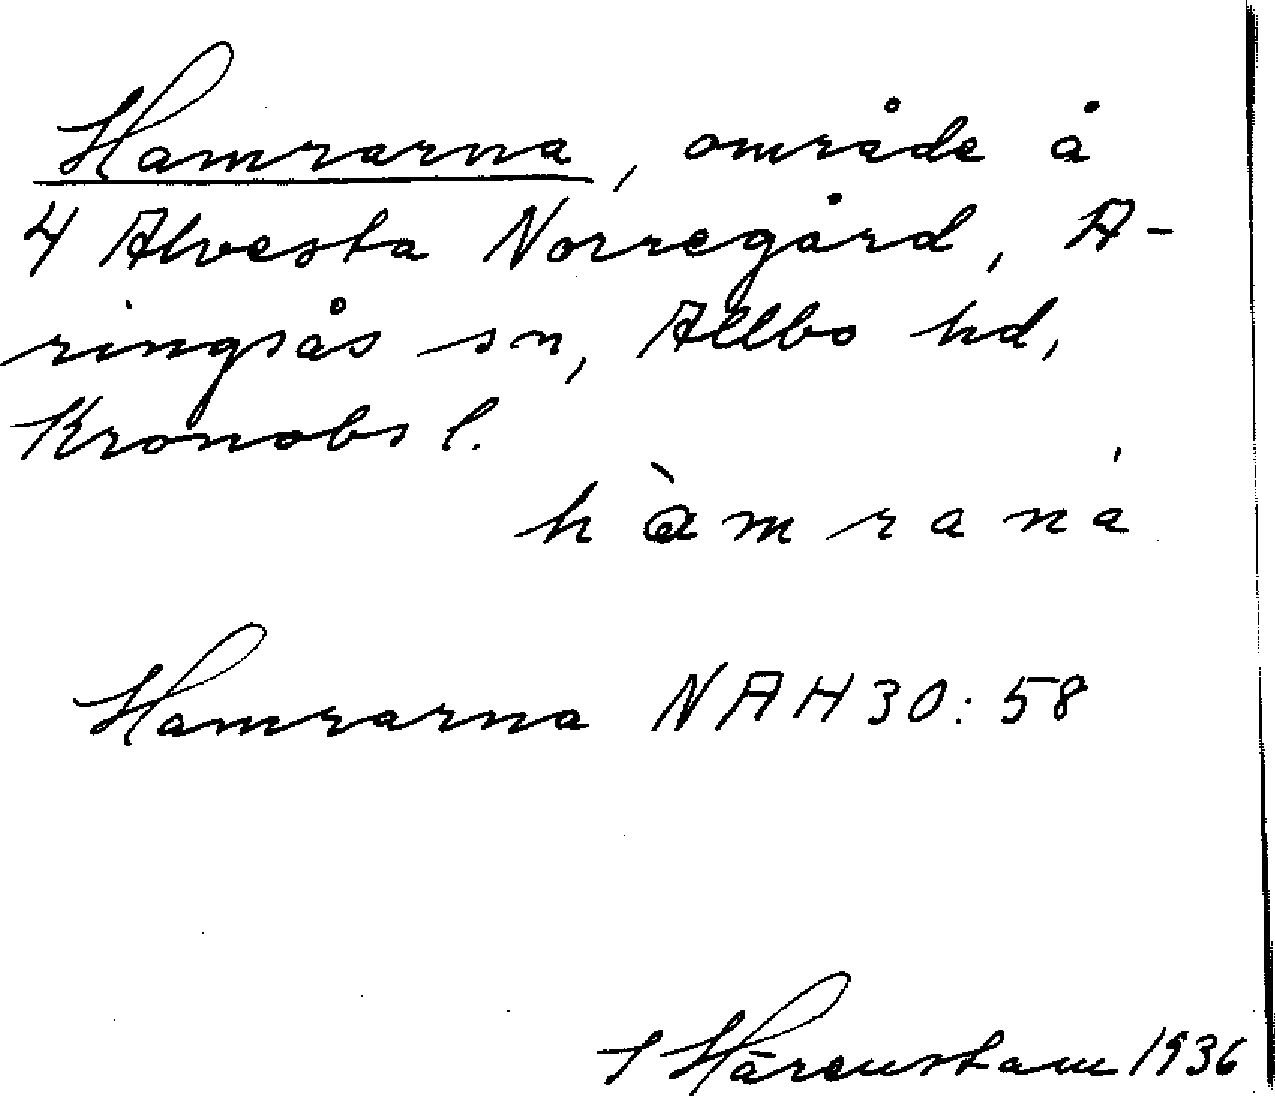 Hamrarna, område å
4 Alvesta Norregård, A-
ringsås sn, Allbo hd,
Kronobs l.
hàmraná
Hamrarna NAH30:58
S Härenstam 1936